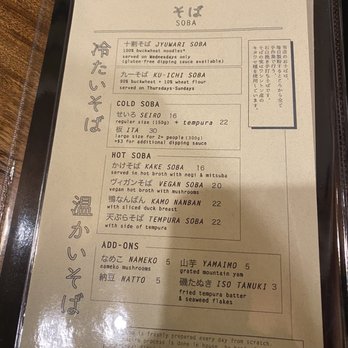 そば
SOBA
冷たいそば
十割そば JYUWARI SOBA
100% buckwheat noodles*
served on Wednesdays only
(gluten free dipping sauce available)
九一そば KU-ICHI SOBA
90% buckwheat + 10% wheat flour
served on Thursdays-Sundays
COLD SOBA
せいろ SEIRO 16
regular size (150g) + tempura 22
板 ITA 30
large size for 2+ people (300g)
+$3 for additional dipping sauce
温かいそば
HOT SOBA
かけそば KAKE SOBA 16
served in hot broth with negi & mitsuba
ヴィガンそば VEGAN SOBA 20
vegan hot broth with mushrooms
鴨なんばん KAMO NANBAN 22
with sliced duck breast
天ぷらそば TEMPURA SOBA 22
with side of tempura
ADD-ONS
なめこ NAMEKO 5
nameko mushrooms
山芋 YAMAIMO 5
grated mountain yam
納豆 NATTO 5
磯たぬき ISO TANUKI 3
fried tempura batter
& seaweed flakes
is freshly prepared every day from scratch.
process is done in house